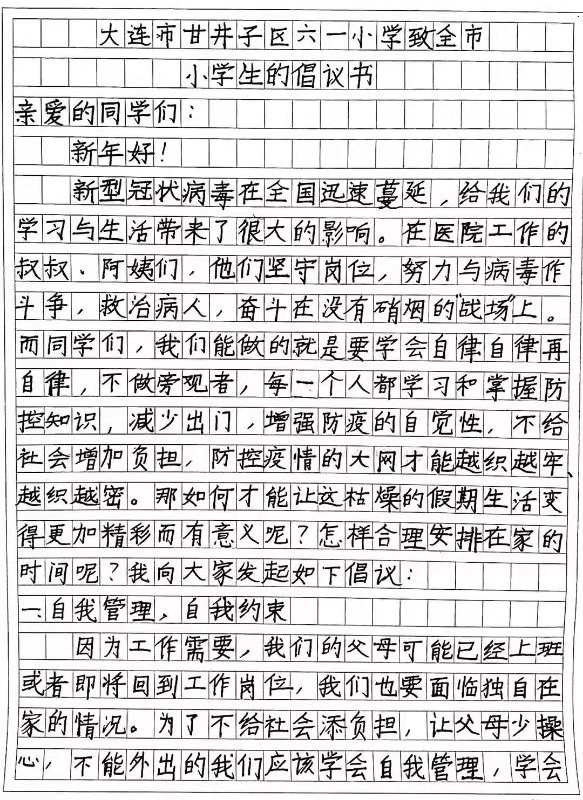 大连市甘井子区六一小学致全市
小学生的倡议书
亲爱的同学们：
新年好！
新型冠状病毒在全国迅速蔓延，给我们的
学习与生活带来了很大的影响。在医院工作的
叔叔、阿姨们，他们坚守岗位，努力与病毒作
斗争，救治病人，奋斗在没有硝烟的“战场”上。
而同学们，我们能做的就是要学会自律自律再
自律，不做旁观者，每一个人都学习和掌握防
控知识，减少出门，增强防疫的自觉性，不给
社会增加负担，防控疫情的大网才能越织越牢、
越织越密。那如何才能让这枯燥的假期生活变
得更加精彩而有意义呢？怎样合理安排在家的
时间呢？我向大家发起如下倡议：
一、自我管理，自我约束
因为工作需要，我们的父母可能已经上班
或者即将回到工作岗位，我们也要面临独自在
家的情况。为了不给社会添负担，让父母少操
心，不能外出的我们应该学会自我管理，学会